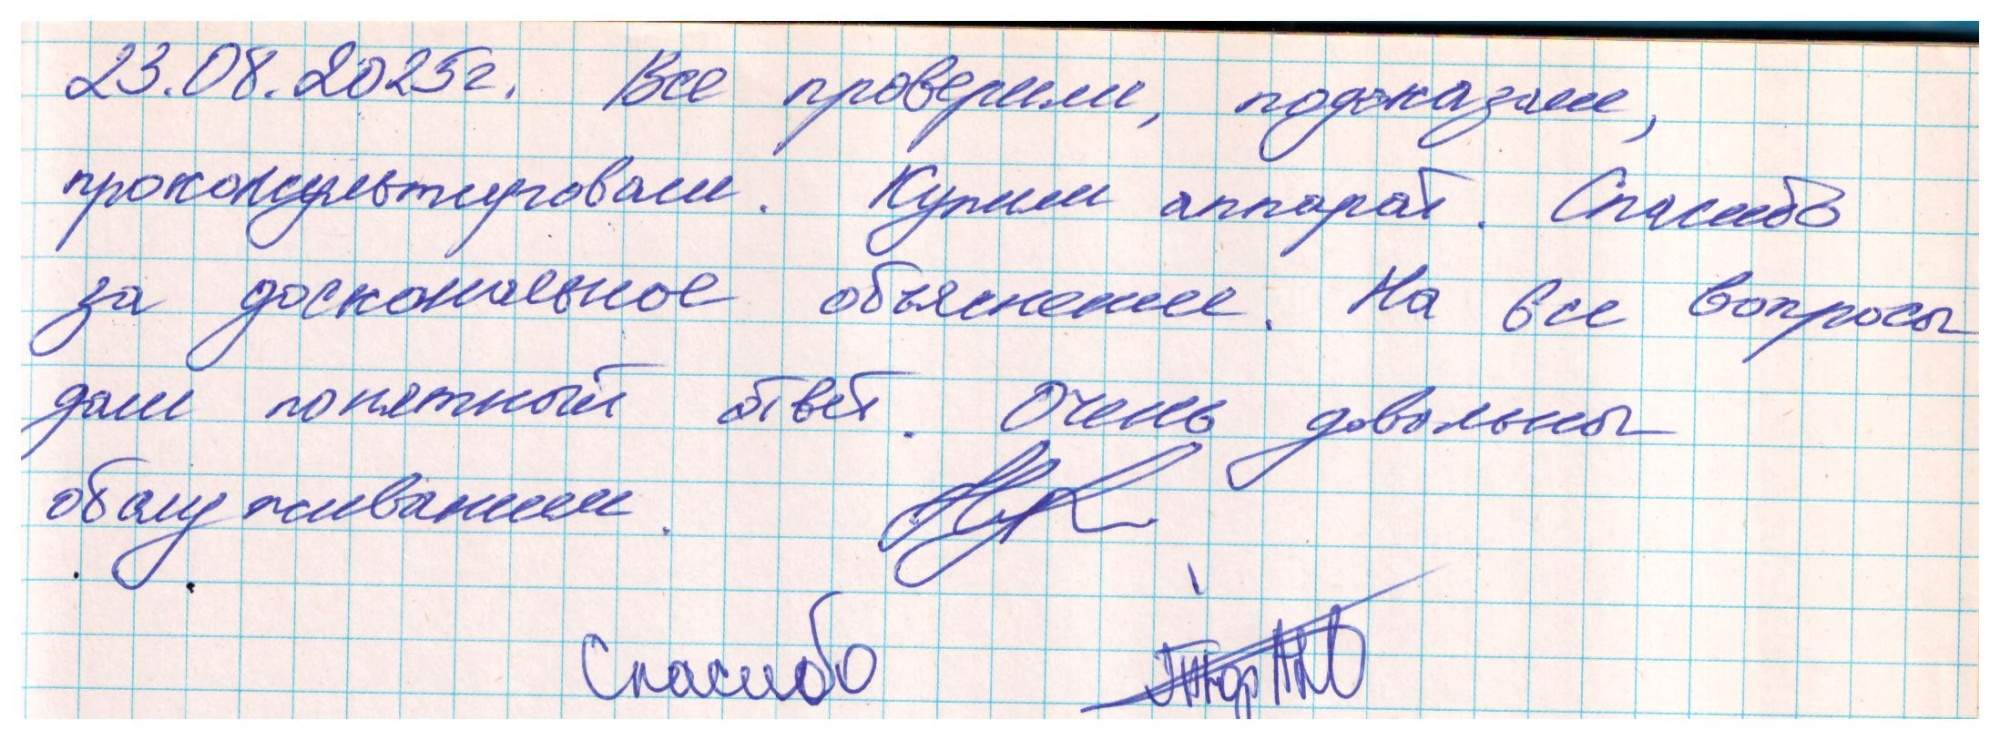 23.08.2025г. Все проверили, подсказали,
проконсультировали. Купили аппарат. Спасибо
за доскональное объяснение. На все вопросы
дали понятный ответ. Очень довольны
обслуживанием.
Спасибо